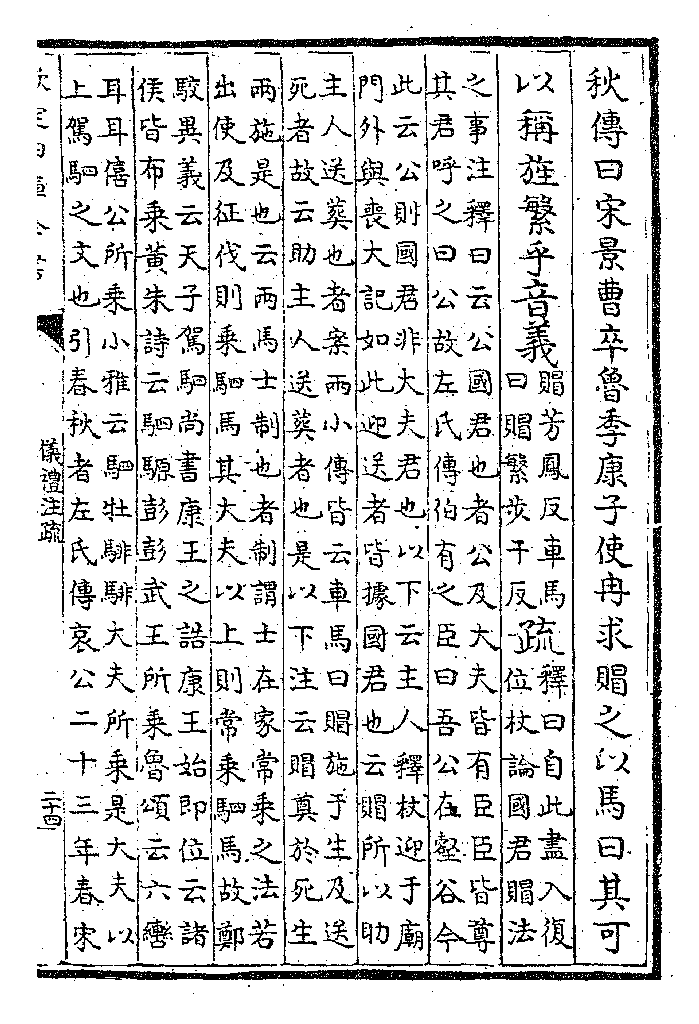 秋傳曰宋景曹卒魯季康子使冉求賵之以馬曰其可
以稱旌繁乎音義賵芳鳳反車馬曰賵繁步干反疏釋曰自此盡入復位杖論國君賵法
之事注釋曰云公國君也者公及大夫皆有臣臣皆尊
其君呼之曰公故左氏傳伯有之臣曰吾公在壑谷今
此云公則國君非大夫君也以下云主人釋杖迎于廟
門外與喪大記如此迎送者皆據國君也云賵所以助
主人送葬也者案兩小傳皆云車馬曰賵施于生及送
死者故云助主人送葬者也是以下注云賵奠於死生
兩施是也云兩馬士制也者制謂士在家常乘之法若
出使及征伐則乘駟馬其大夫以上則常乘駟馬故鄭
駮異義云天子駕駟尚書康王之誥康王始即位云諸
侯皆布乘黃朱詩云駟騵彭彭武王所乘魯頌云六轡
耳耳僖公所乘小雅云駟牡騑騑大夫所乘是大夫以
上駕駟之文也引春秋者左氏傳哀公二十三年春宋
欽定四庫全書
儀禮注疏
二十四